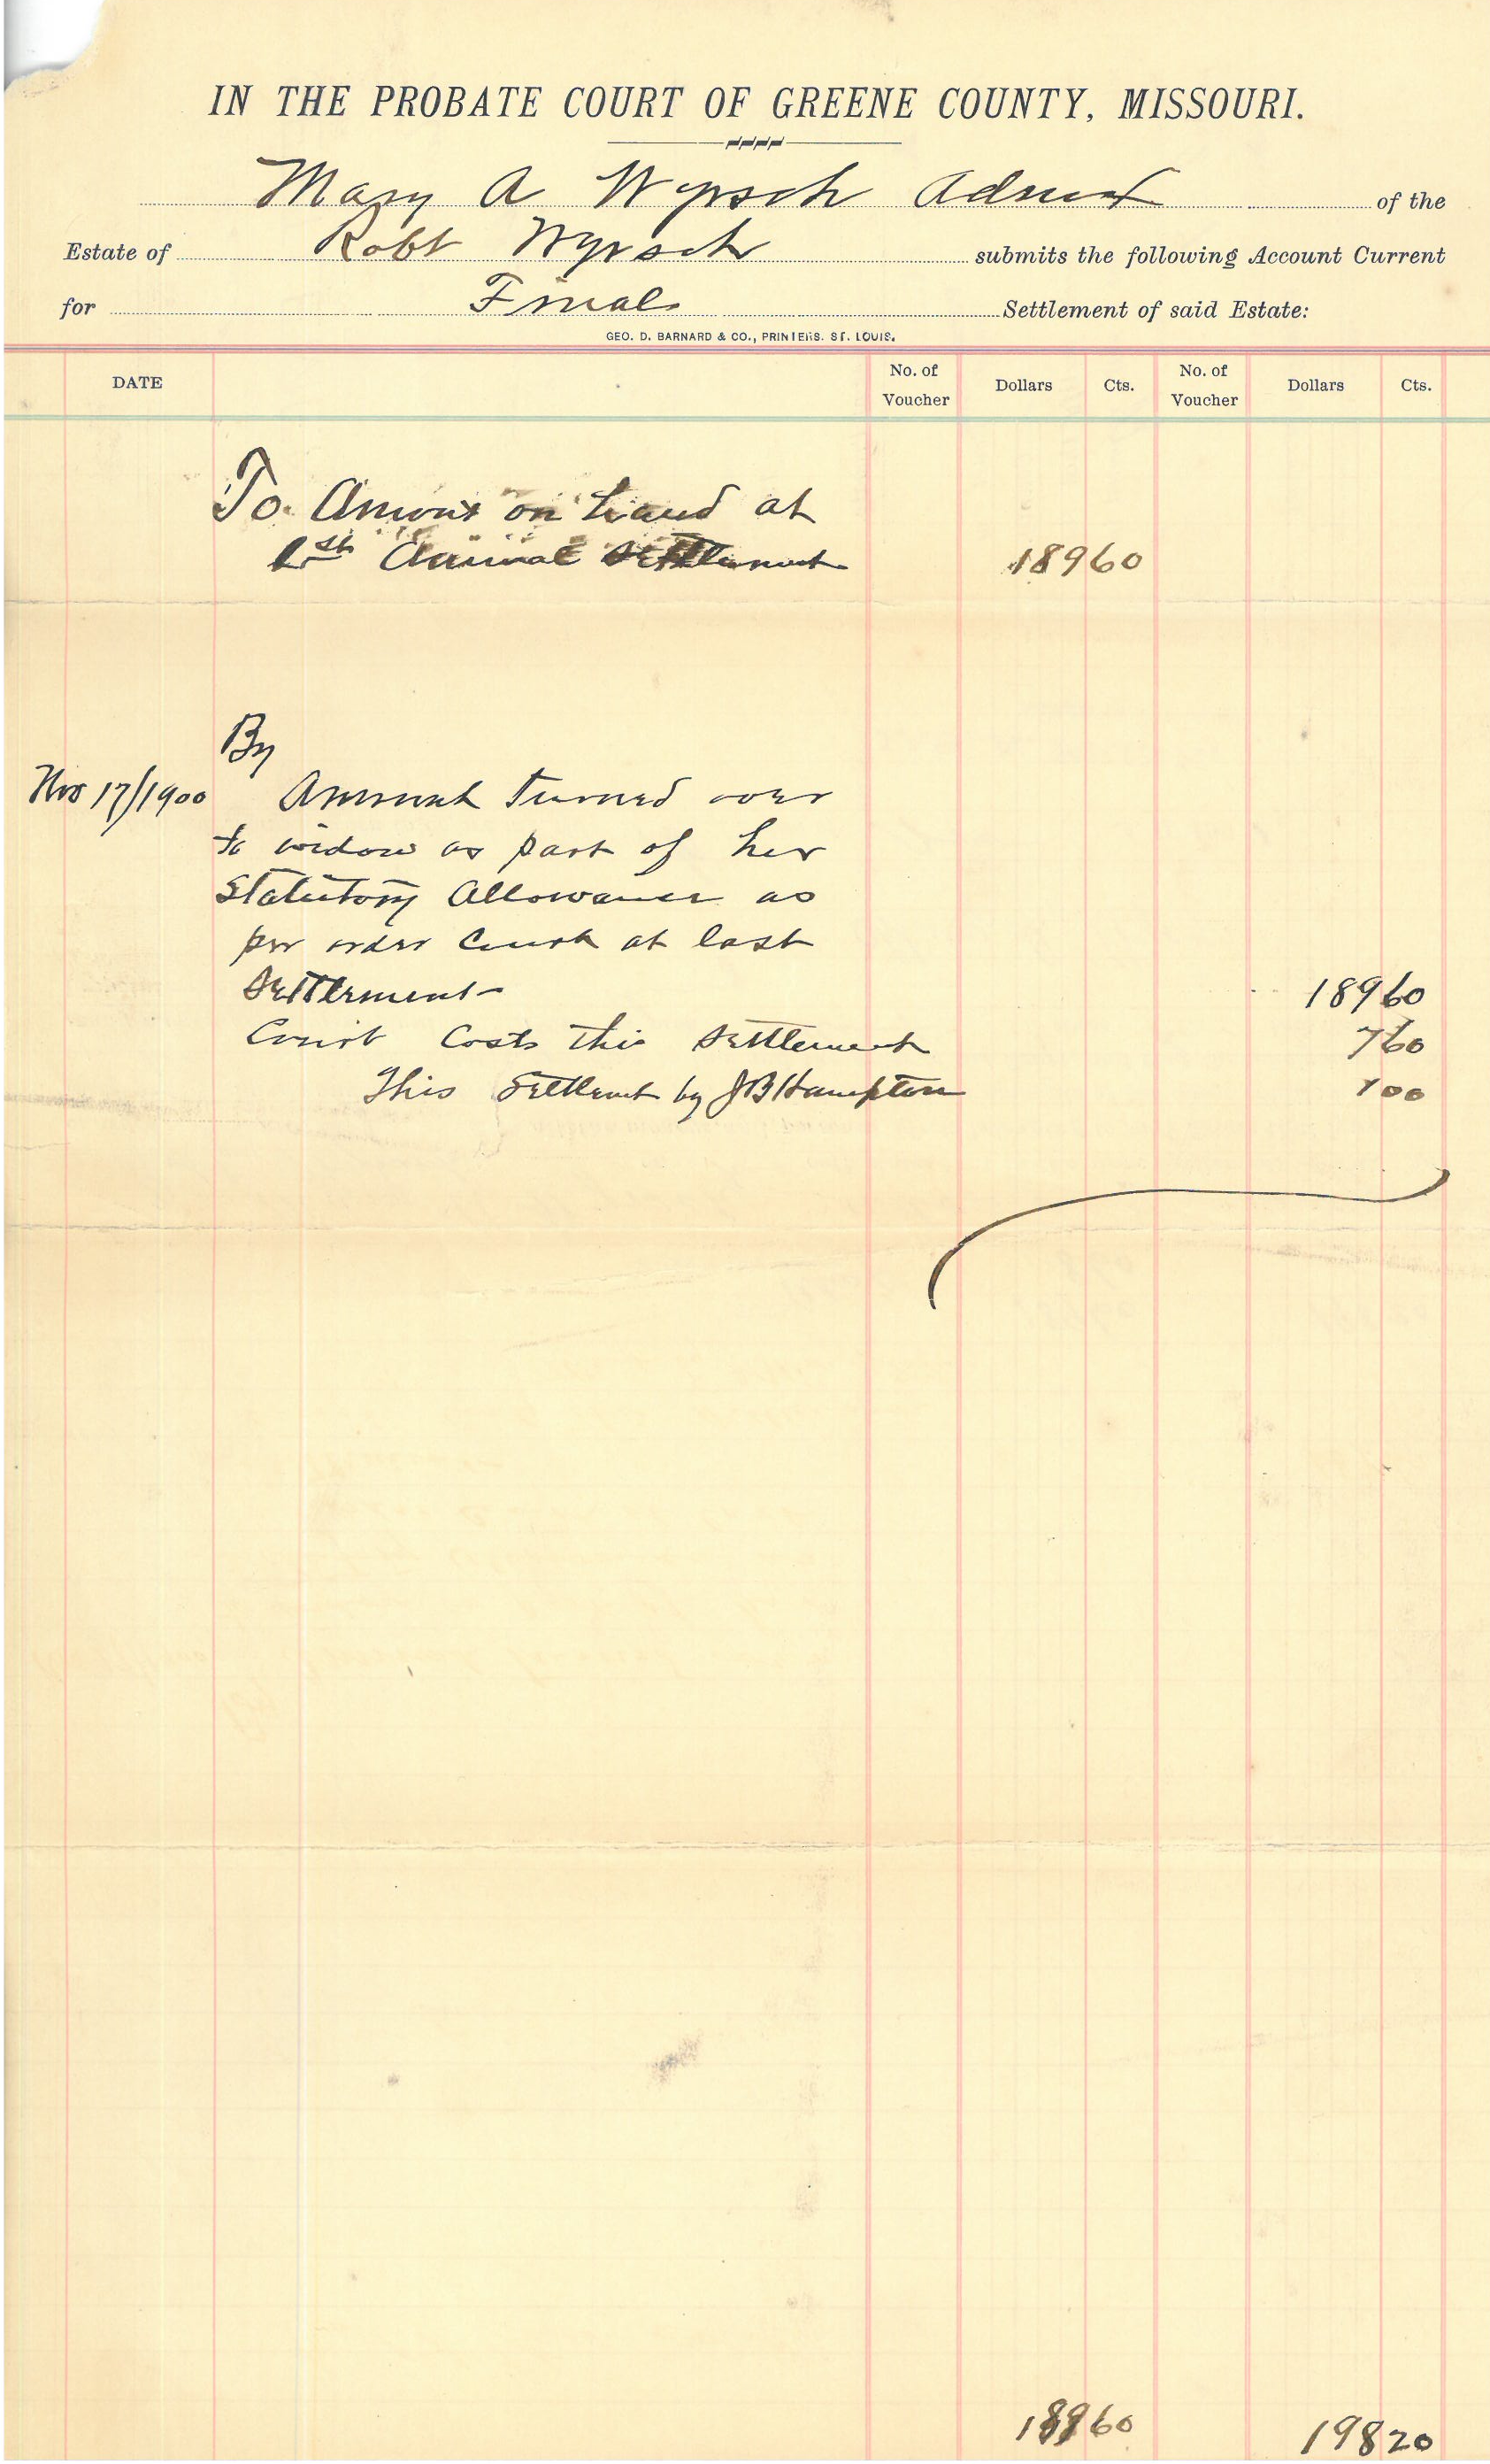 IN THE PROBATE COURT OF GREENE COUNTY, MISSOURI.
Mary A Wyrsch Admx of the
Estate of Robt Wyrsch submits the following Account Current
for Final Settlement of said Estate:
GEO. D. BARNARD & CO., PRINTERS. ST. LOUIS.
DATE No. of Voucher Dollars Cts. No. of Voucher Dollars Cts.
To Amount on hand at
1st Annual Settlement 189 60
By
Nov 17/1900 Amount turned over
to widow as part of her
Statutory Allowance as
per order Court at last
Settlement 189 60
Court Costs this Settlement 7 60
This Settlemt by J B Hampton 1 00
189 60 198 20